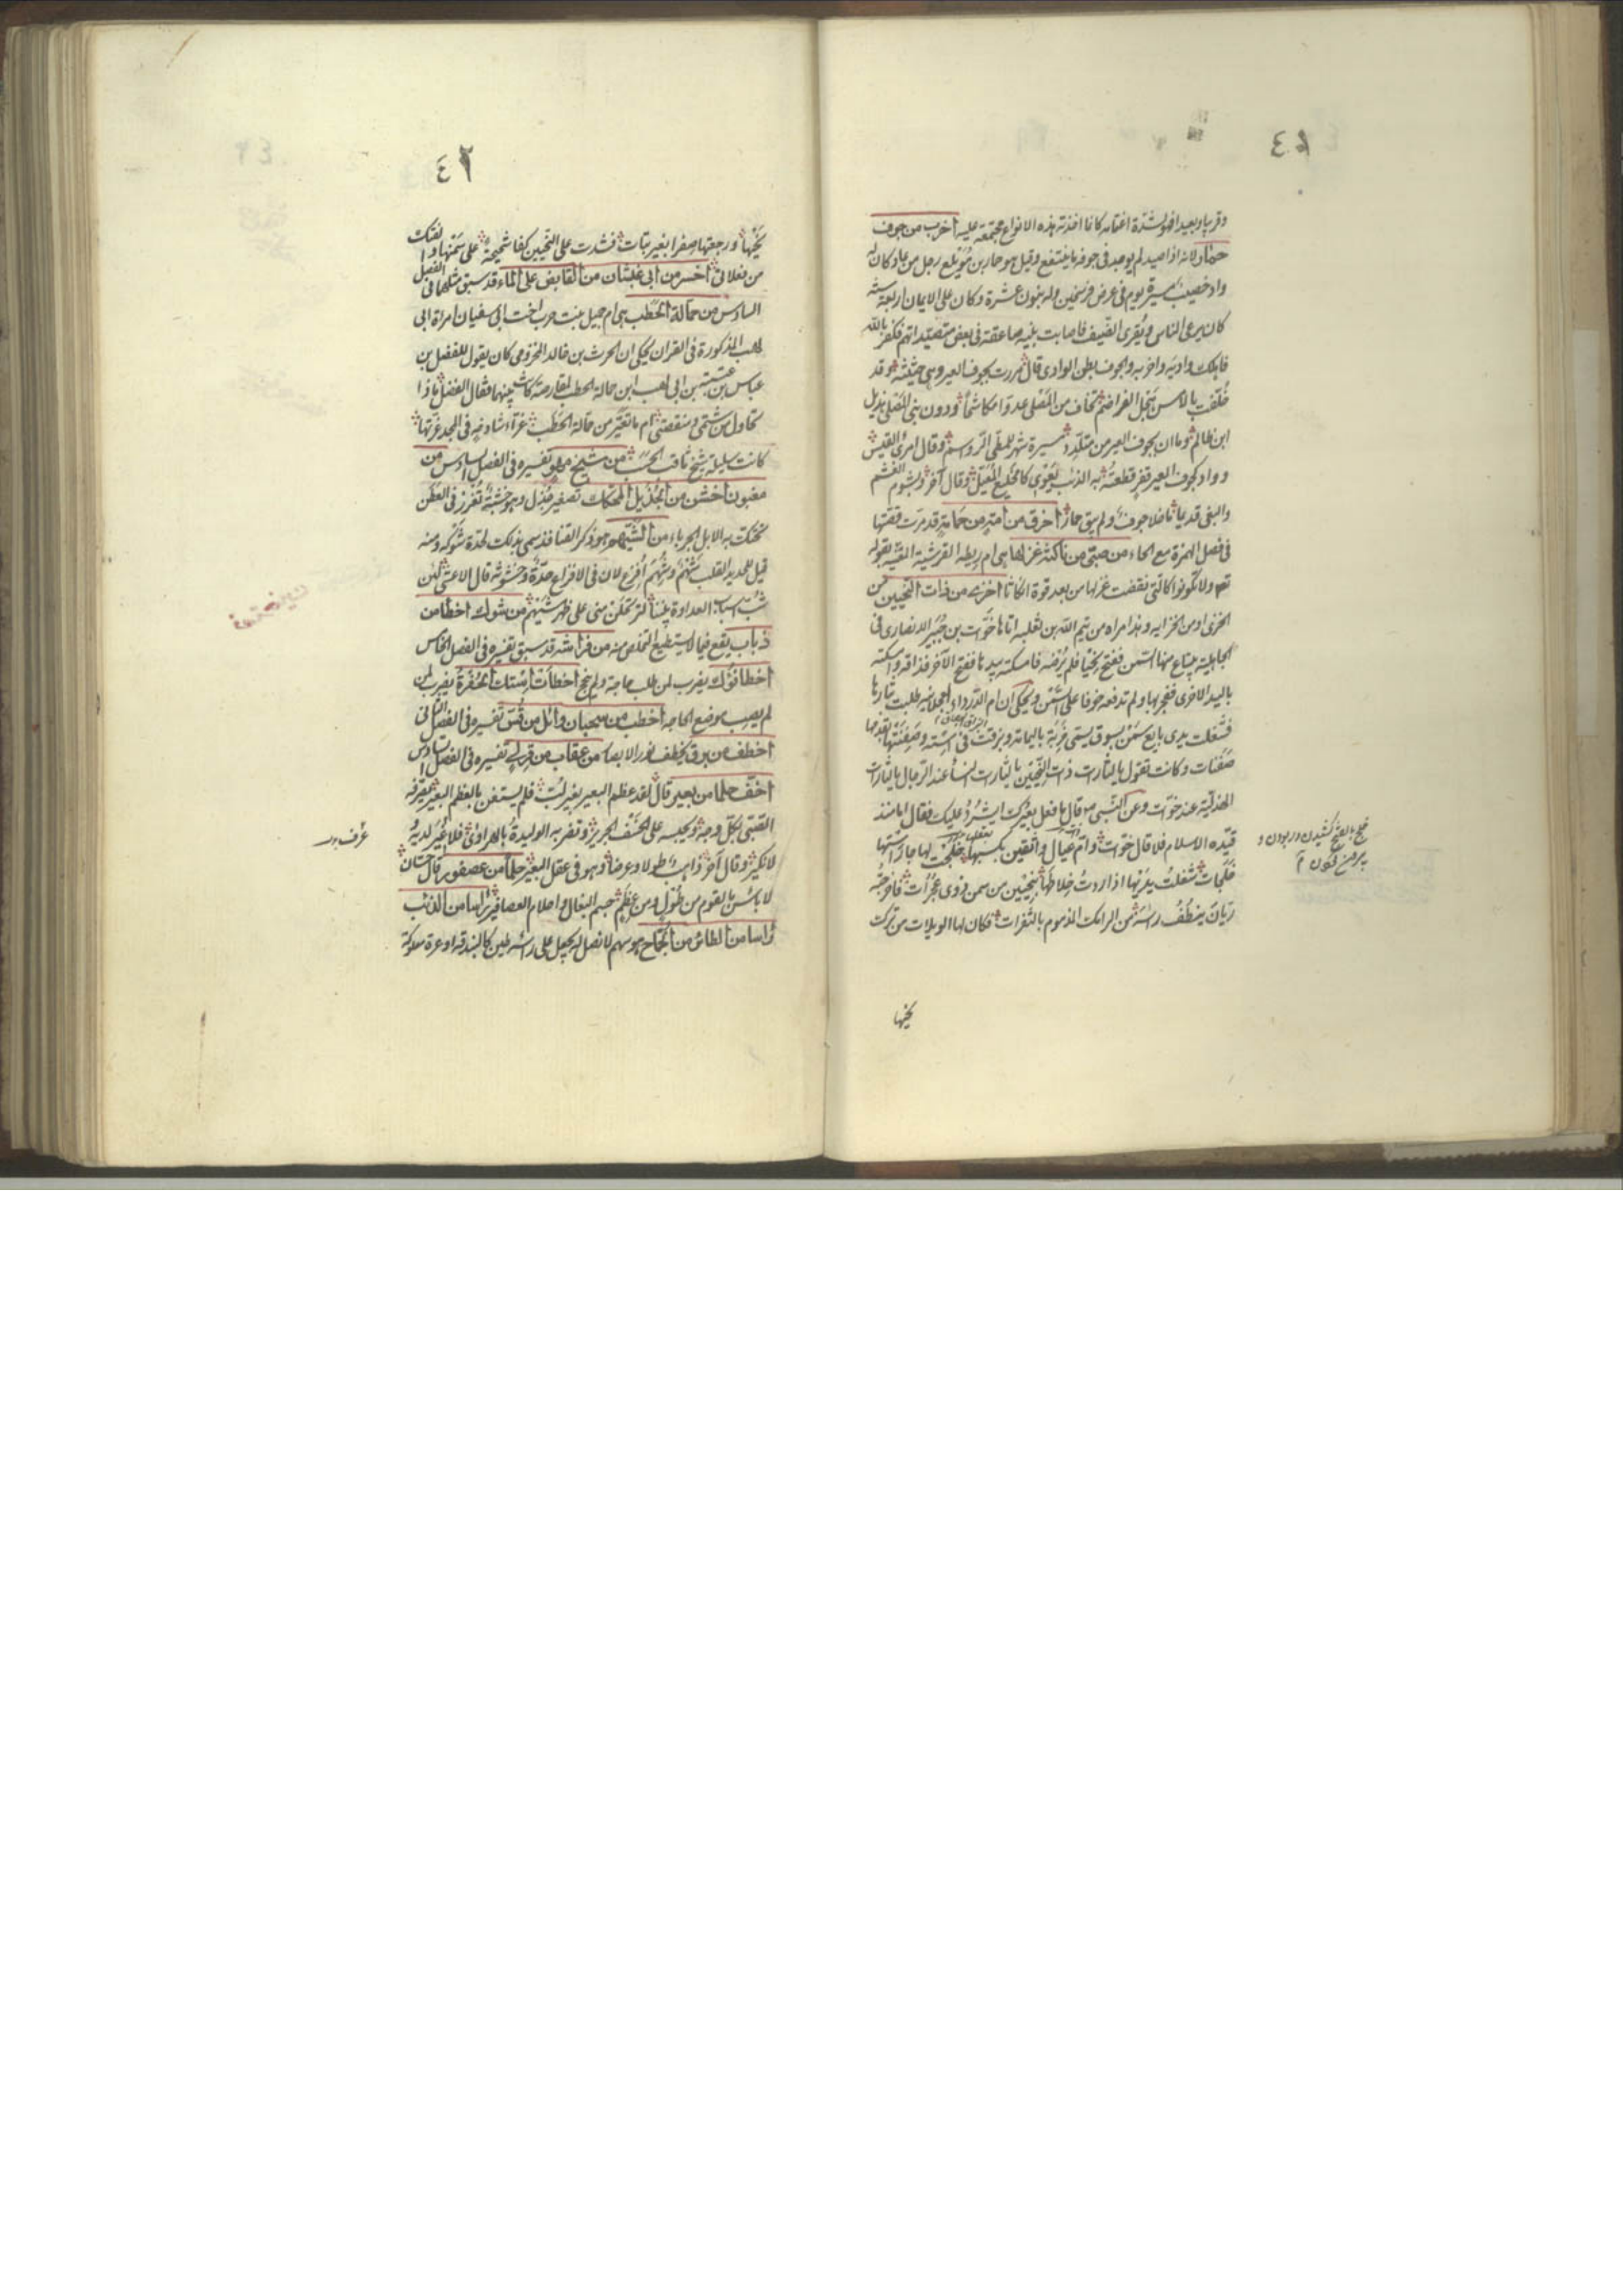 ٤١
وقرباو بعيدا فهو لشدة اغتمامه كانما اخذته هذه الانواع مجتمعة عليه اخرب من جوف
حمار لانه اذا صيد لم يوجد فى جوفه ما ينتفع وقيل هو حمار بن مويلع رجل من عاد وكان له
واد خصيب مسيرة يوم فى عرض فرسخين وله بنون عشرة وكان على الايمان اربعة سنة
كان يرعى الناس ويقرى الضيف فاصابت بنيه صاعقة فى بعض متصيداتهم فكفر بالله
فاهلك واديه واخربه والجوف بطن الوادى قال مررت بجوف العير وهى حثيثة وقد
خلفت بالامس هجل الفراضم تخاف من المصلى عدوا مكاشحا ودون بنى المصلى هديل
ابن ظالم وما ان بجوف العير من متلدد مسيرة شهر للمطى الرواسم وقال امرئ القيس
وواد كجوف العير قفر قطعته به الذئب يعوى كالخليع المعيل وقال آخر وبشوم الغشم
والبغى قديما ما خلا جوف ولم يبق حمار اخرق من امة من حمامة قد مرت قصتها
فى فصل الهمزة مع الحاء من صبى من ناكثة غزلها هى ام ريطه القرشية المعنية بقوله
تعـ ولا تكونوا كالتى نقضت غزلها من بعد قوة انكاثا اخزى من ذات النحيين من
الخزى او من الخزايه وهذا امراه من تيم الله بن ثعلبه اتاها خوات بن جبير الانصارى فى
الجاهلية يبتاع منها السمن ففتح نحيا فلم يرضه فامسكته بيدها ففتح الآخر فذاقه وامسكته
باليد الاخرى ففجر بها ولم تدفعه خوفا على السمن ويحكى ان ام الدرداء العجلانيه طلبت بثارها
فشغلت يدى بايع سمن بسوق يسمى غربة باليمامة وبزقت فى استه وصفنتها بقدمها
صفنات وكانت تقول يا لثارات ذات النحيين يا لثارات النساء عند الرجال يا لثارات
الهذلية عند خوات وعن النبى ص قال ما فعل بعيرك ايشرد عليك فقال اما منذ
قيده الاسلام فلا قال خوات وام عيال واثقين بكسبها خلجت لها جار استها
خلجات شغلت يديها اذا اردت خلاطها بنحيين من سمن ذوى عجرات فاخرجته
ريان ينطف راسه من الرامك المذموم بالثفرات فكان لها الويلات من ترك
خلج بالفتح كشيدن وربودن و
نحيها
٤٢
نحيها ورجعتها صفرا بغير بتات فشدت على النحيين كفا شحيحة على سمنها والفتك
من فعلاتى اخسر من ابى غبشان من القابض على الماء قد سبق مثلهما فى الفصل
السادس من حمالة الحطب هى ام جميل بنت حرب اخت ابى سفيان امراة ابى
لهب المذكورة فى القران يحكى ان الحرث بن خالد المخزومى كان يقول للفضل بن
عباس بن عتبة بن ابى لهب ابن حمالة الحطب لمقارصة كانت بينهما فقال الفضل ماذا
تحاول من شتمى ومنقصتى ام ما تعير من حمالة الحطب غراء شادخه فى المجد غرتها
كانت سليلة شيخ ثاقب الحسب من شيخ مهو تفسيره فى الفصل السادس من
مغبون اخشن من الجذيل المحكك تصغير جذل وهو خشبة تغرز فى العطن
تحتك به الابل الجرباء من الشيهم هو ذكر القنافذ سمى بذلك لحدة شوكه ومنه
قيل للحديد القلب شهم وشهم افزع لان فى الافزاع حدة وخشونة قال الاعشى لئن
شب اسباب العداوة بيننا لترتحلن منى على ظهر شيهم من شوك اخطا من
ذباب يقع فيما لا يستطيع التخلص منه من فراشة قد سبق تفسيره فى الفصل الخامس
اخطا نوؤك يضرب لمن طلب حاجة ولم ينجح اخطأت استك الحفرة يضرب لمن
لم يصب موضع الحاجه اخطب من سحبان وائل من قس تفسيره فى الفصل الثانى
اخطف من برق يخطف نور الابصار من عقاب من قرلى تفسيره فى الفصل السادس
اخف حلما من بعير قال لقد عظم البعير بغير لب فلم يستغن بالعظم البعير يصرفه
الصبى بكل وجه ويحبسه على الخسف الجرير وتضربه الوليدة بالهراوى فلا غير لديه
عرف بدر
لا نكير وقال آخر ذاهب طولا وعرضا وهو فى عقل البعير حلما من عصفور قال حسان
لا باس بالقوم من طول ومن عظم جسم البغال واحلام العصافير راسا من الذئب
راسا من الطائر من الجماح هو سهم لا نصل له يجعل على راسه طين كالبندقه او عرة معلوكة